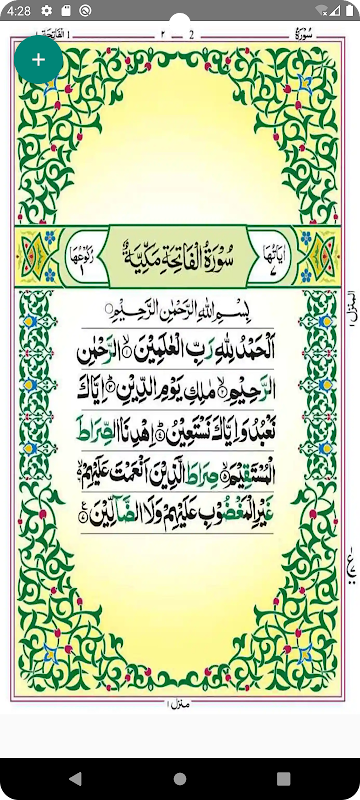 4:28
سُوْرَةُ
٢ — 2
الفاتحة ١
+
اٰيَاتُهَا ٧
سُوْرَةُ الْفَاتِحَةِ مَكِّيَّةٌ
رُكُوْعُهَا ١
بِسْمِ اللهِ الرَّحْمٰنِ الرَّحِيْمِ
اَلْحَمْدُ لِلّٰهِ رَبِّ الْعٰلَمِيْنَ ۙ﴿۱﴾ الرَّحْمٰنِ
الرَّحِيْمِ ۙ﴿۲﴾ مٰلِكِ يَوْمِ الدِّيْنِ ؕ﴿۳﴾ اِيَّاكَ
نَعْبُدُ وَ اِيَّاكَ نَسْتَعِيْنُ ؕ﴿۴﴾ اِهْدِنَا الصِّرَاطَ
الْمُسْتَقِيْمَ ۙ﴿۵﴾ صِرَاطَ الَّذِيْنَ اَنْعَمْتَ عَلَيْهِمْ ۙ۬﴿۶﴾
غَيْرِ الْمَغْضُوْبِ عَلَيْهِمْ وَلَا الضَّآلِّيْنَ ﴿۷﴾
المنزل ١
ع
٧
منزل ١